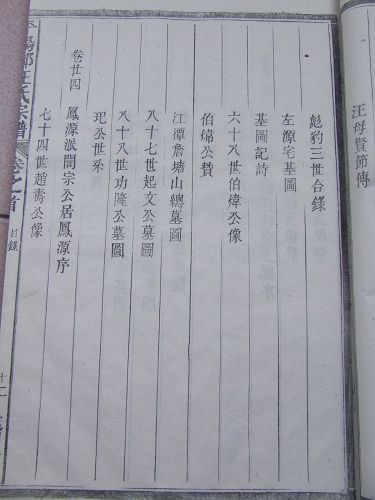 汪母賢節傳
彪豹三世合錄
左源宅基圖
基圖記詩
六十八世伯煒公像
伯煒公贊
江潭詹塘山總墓圖
八十七世起文公墓圖
八十八世功隆公墓圖
玘公世系
卷廿四
鳳源派誾宗公居鳳源序
七十四世趙壽公像
汪氏宗譜
卷之首
目錄